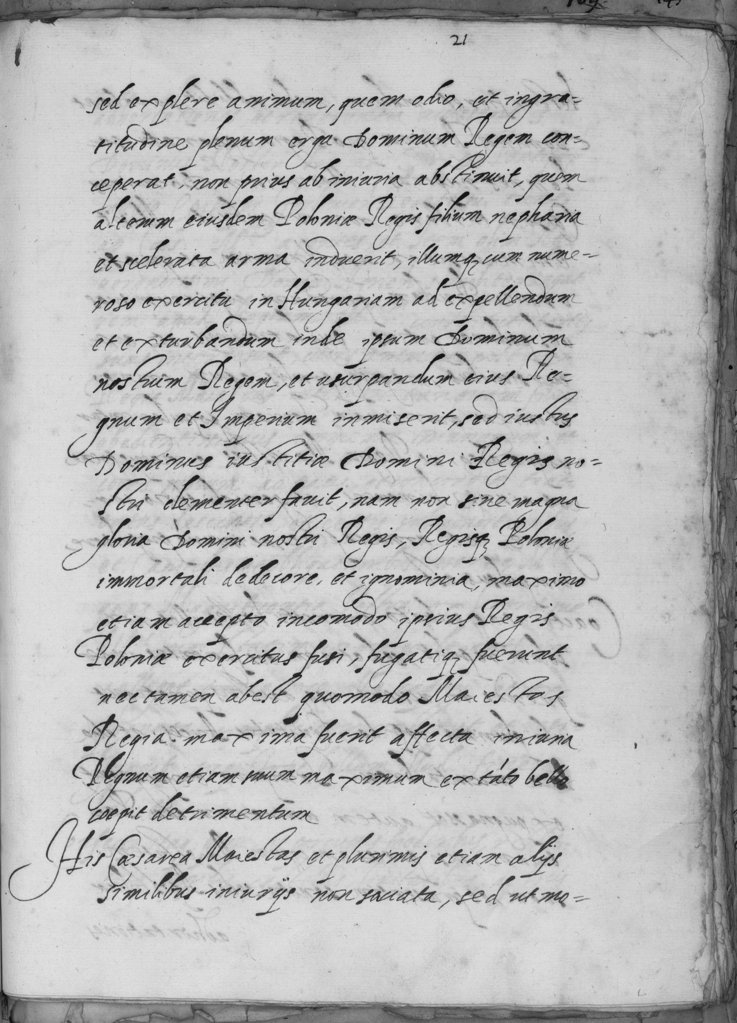 21
sed explere animum, quem odio, et ingra=
titudine plenum erga Dominum Regem con=
ceperat, non prius ab iniuria abstinuit, quam
alterum eiusdem Poloniæ Regis filium nepharia
et scelerata arma induerit, illumq, cum nume=
roso exercitu in Hungariam ad expellendum
et exturbandum inde ipsum Dominum
nostrum Regem, et usurpandum eius Re=
gnum et Imperium inmiserit, sed iustus
Dominus iustitiæ Domini Regis no=
stri clementer favit, nam non sine magna
gloria Domini nostri Regis, Regisq, Poloniæ
immortali dedecore, et ignominia, maximo
etiam accepto incomodo ipsius Regis
Poloniæ exercitus fusi, fugatiq, fuerunt
nec tamen abest quomodo Maiestas
Regia maxima fuerit affecta iniuria
Regnum etiam suum maximum ex tãto bello
cœpit detrimentum
His Cæsarea Maiestas et plurimis etiam alijs
similibus iniurijs non saciata, sed ut mo=